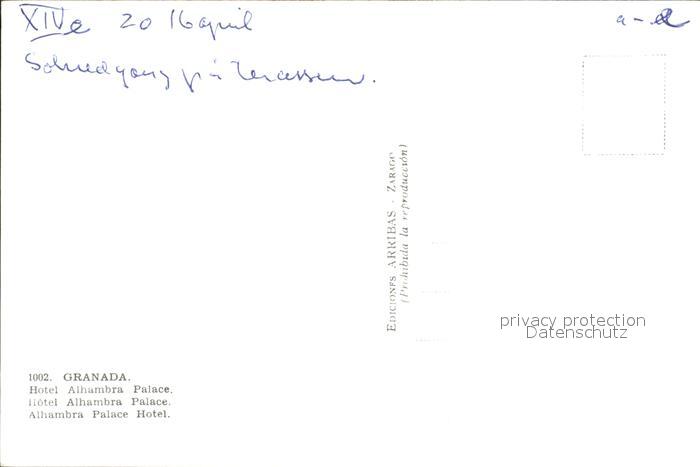 XIVe 20 16 april
a-d
Solnedgang på terassen.
EDICIONES ARRIBAS - ZARAGO
(Prohibida la reproducción)
privacy protection
Datenschutz
1002. GRANADA.
Hotel Alhambra Palace.
Hôtel Alhambra Palace.
Alhambra Palace Hotel.